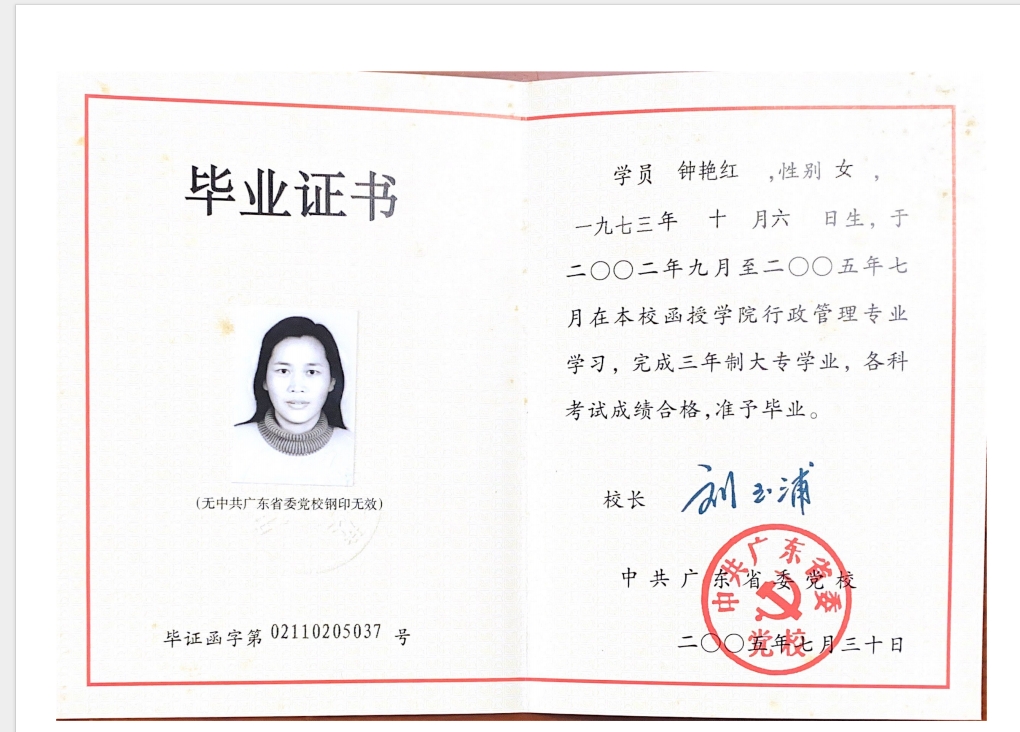 毕业证书
(无中共广东省委党校钢印无效)
毕证函字第 02110205037 号
学员 钟艳红 ,性别 女 ,
一九七三年 十 月六 日生, 于
二〇〇二年九月至二〇〇五年七
月在本校函授学院行政管理专业
学习, 完成三年制大专学业, 各科
考试成绩合格,准予毕业。
校长 刘玉浦
中共广东省委党校
二〇〇五年七月三十日
中共广东省委
党校